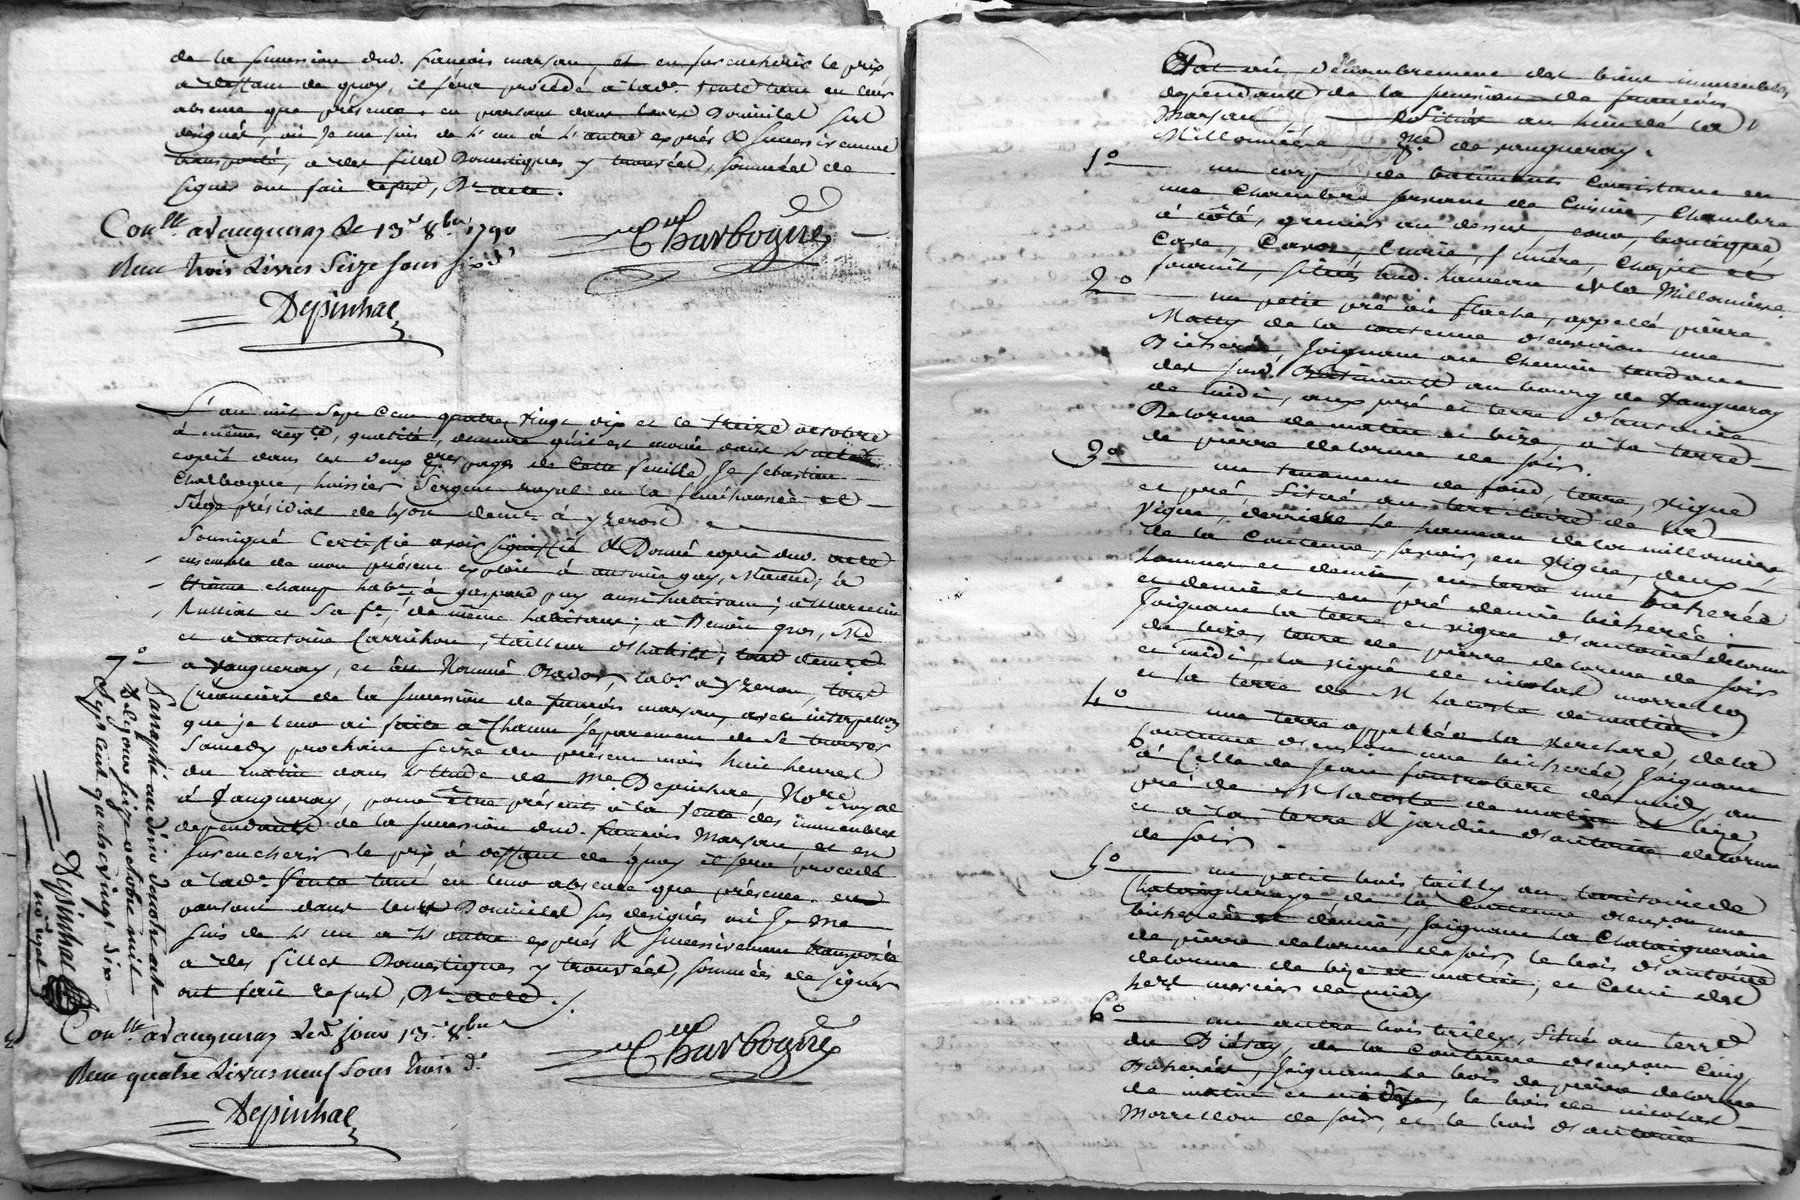 de la succession dud. francois marsan, et en surencherir le prix
a deffaut de quoy, il sera procédé à lad. vente tant en leur
absence que présence, en parlant dans leurs Domiciles sus
designés, où je me suis de l'un à l'autre exprés & successivement
transporté, a des filles Domestiques y trouvées, sommées de
signer ont fait refus, D. acte.
Con.lle a Vaugneray Le 13.e 8.bre 1790
Reçu trois Livres Seize sous six d.s
Charbogne
Depinhac
L'an mil Sept Cent quatre vingt dix et le treize octobre
à mêmes req.te, qualité, demeure qu'il est énoncé dans l'acte
copié dans les deux pages de cette feuille Je Sebastien
Chalbogne, huissier Sergent royal en la sénéchaussée et
Siège présidial de Lyon dem.t à yzeron
Soussigné Certifie avoir signiffié & Donné copie dud. acte
ensemble de mon présent exploit à antoine gay, March.d, à
étienne champ hab.t à gaspard puy aussi habitant; à Marcelin
Rulliat et Sa f.e, de même habitans; à Benoit gros, M.d
et a antoine Carrichon, tailleur d'habits, tous dem.t
a Vaugneray, et au Nommé Radoz, lab.r a yzeron, tous
Créanciers de la succession de francois marsan, avec interpellon
que je leur ai faite a Chacun séparement de se trouver
Samedy prochain seize du présent mois huit heures
du matin dans l'Etude de M.e Depinhac, No.re royal
à Vaugneray, pour être présents à la vente des immeubles
dependants de la succession dud. francois Marsan, et en
surencherir le prix à deffaut de quoy il sera procedé
à lad.e Vente tant en leur absence que présence, en
parlant dans leurs Domiciles sus designés où Je me
suis de l'un a l'autre exprés & successivement transporté
a des filles Domestiques y trouvées, sommées de signer
ont fait refus, D. acte.
Con.lle a Vaugneray Led. jour 13.e 8.bre
Reçu quatre Livres neuf Sous trois d.s
Charbogne
Depinhac
7.o
Paraphé au désir de notre acte
de ce jour seize octobre mil
Sept cent quatre vingt dix
Depinhac
no. royal
Etat ou dénombrement des biens immeubles
dependants de la succession de francois
Marsan, Situés au hameau de la
Millonnière p.sse de vaugneray.
1.o un corps de batiments Consistant en
une Chambre servant de Cuisine, Chambre
à côté, greniers au dessus, cour, boutique,
Cave, Cuvier, Ecurie, fenière, Chapit et
fournil, situés aud. hameau de la Millonnière
2.o un petit pré ou flache, appellé pierre
Matty de la contenue d'environ une
Bicherée, Joignant au Chemin tendant
des batiments au bourg de Vaugneray
de midi, aux pré et terre d'antoine
Delorme de matin et bize, a la terre
de pierre delorme de soir.
3.o un tenement de fond, terre, vigne
et pré, Situé au territoire de la
vigne, derriere le hameau de la millonnière
de la Contenue, savoir, en vigne, deux
hommes et demie, en terre une bicherée
et demie et en pré demie bicherée;
Joignant la terre et vigne d'antoine delorme
de bize, terre de pierre delorme de soir
et midi, la vigne de nicolas morrellon
et la terre de M. lacoste de matin,
4.o une terre appellée la verchere, de la
contenue d'environ une bicherée, Joignant
à Celle de Jean fontrobert de midy, au
pré de M. lacoste de matin et bize
et a la terre & jardin d'antoine delorme
de soir.
5.o un petit bois tailly au territoire de
Chataigneraye, de la Contenue d'environ une
bicherée et demie, Joignant la Chataigneraie
de pierre delorme de soir, le bois d'antoine
delorme de bize et matin, et Celui des
her.s mercier de midy
6.o un autre bois tailly, Situé au terr.e
du Didray, de la Contenue d'environ Cinq
Bicherées, Joignant le bois de pierre delorme
de matin et midy, le bois de nicolas
Morrellon de soir, et le bois d'antoine